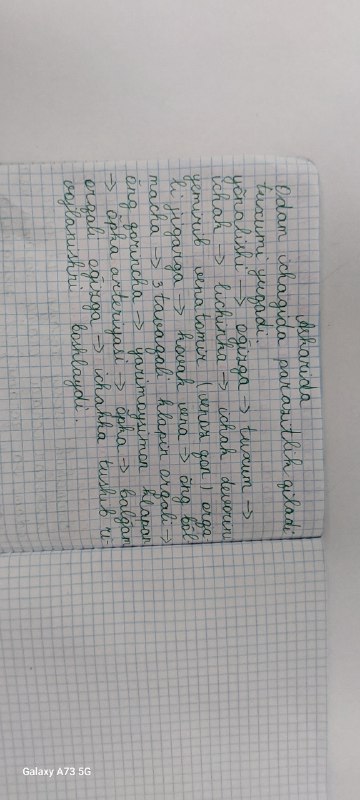 Askarida
Odam ichagida parazitlik qiladi
tuxumi yuqadi.
yoralishi → ogizga → tuxum →
ichak → lichinka → ichak devorini
yemirib vena tomir (venoz qon) orqa
li jigarga → kovak vena → ong bõl
macha → 3 tavaqali klapn orqali →
ong qorincha → yarimoysimon klapan
→ õpka arteriyasi → õpka → balğam
orqali ogizga → ichakka tushib ri-
vojlanishni boshlaydi.
Galaxy A73 5G